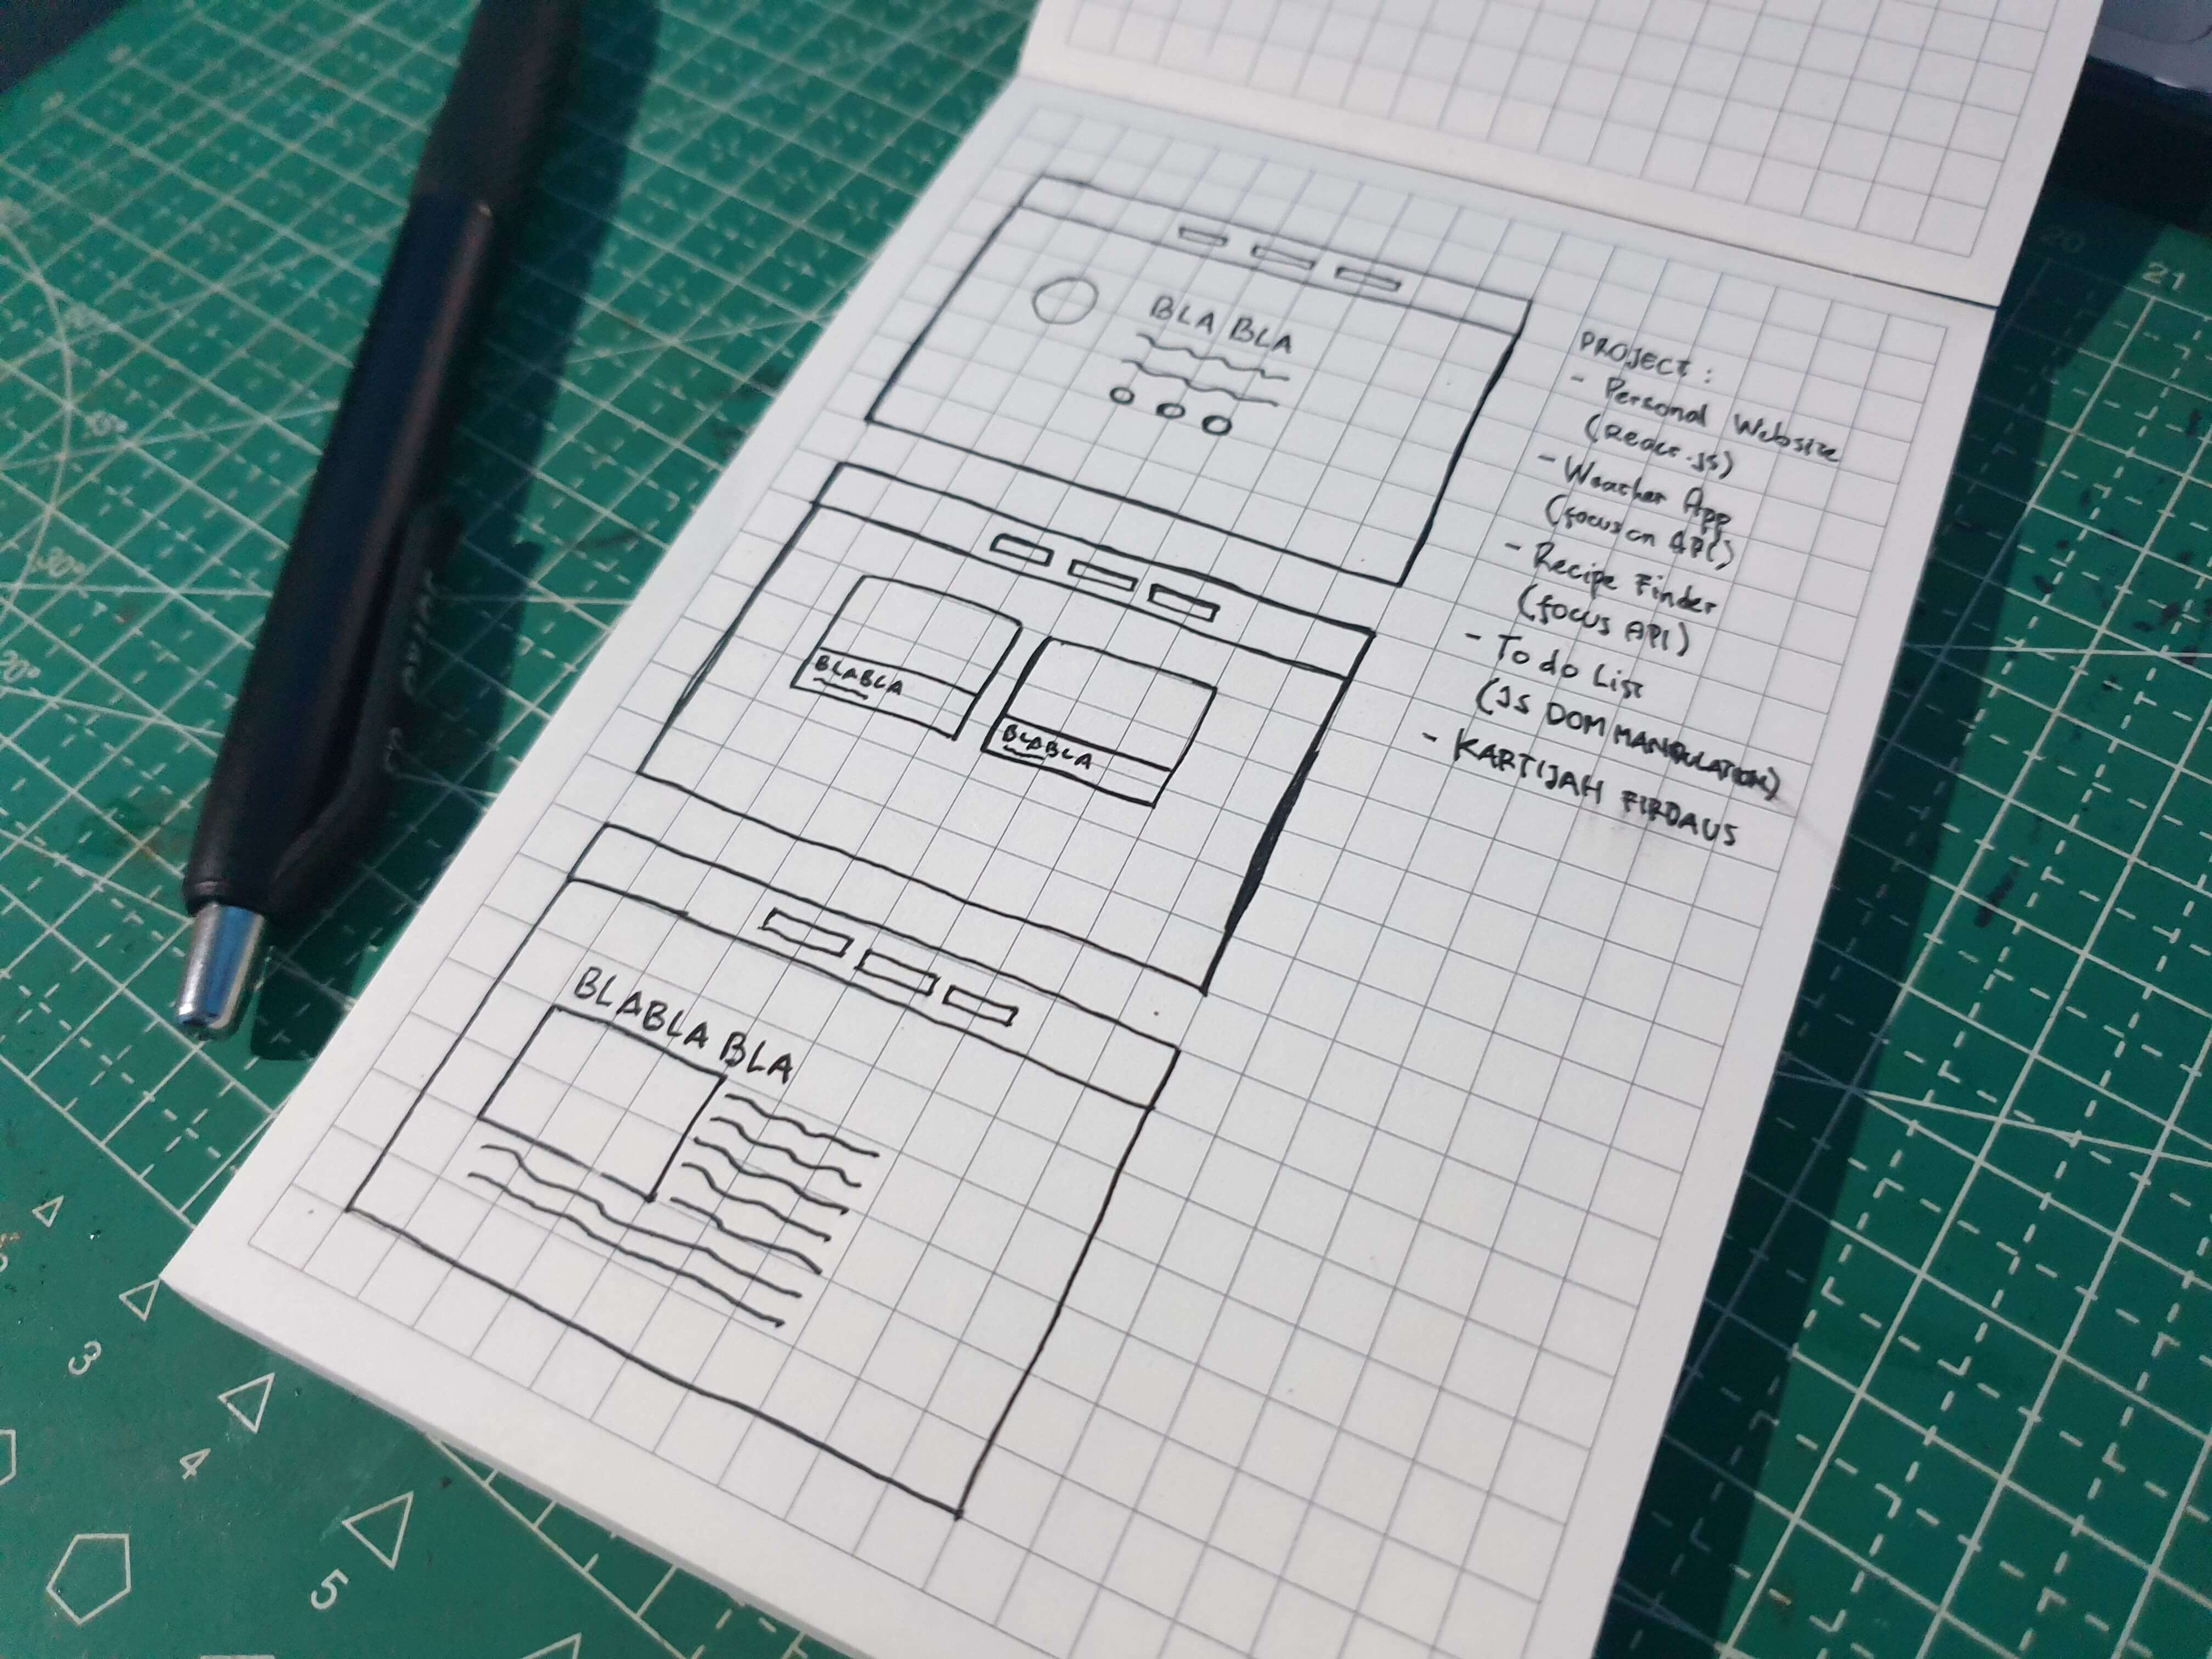 BLA BLA
BLABLA
BLABLA
BLABLA BLA
PROJECT :
- Personal Website
(React.JS)
- Weather App
(focus on API)
- Recipe Finder
(focus API)
- To do List
(JS DOM MANIPULATION)
- KARTIJAH FIRDAUS
20
21
3
4
5